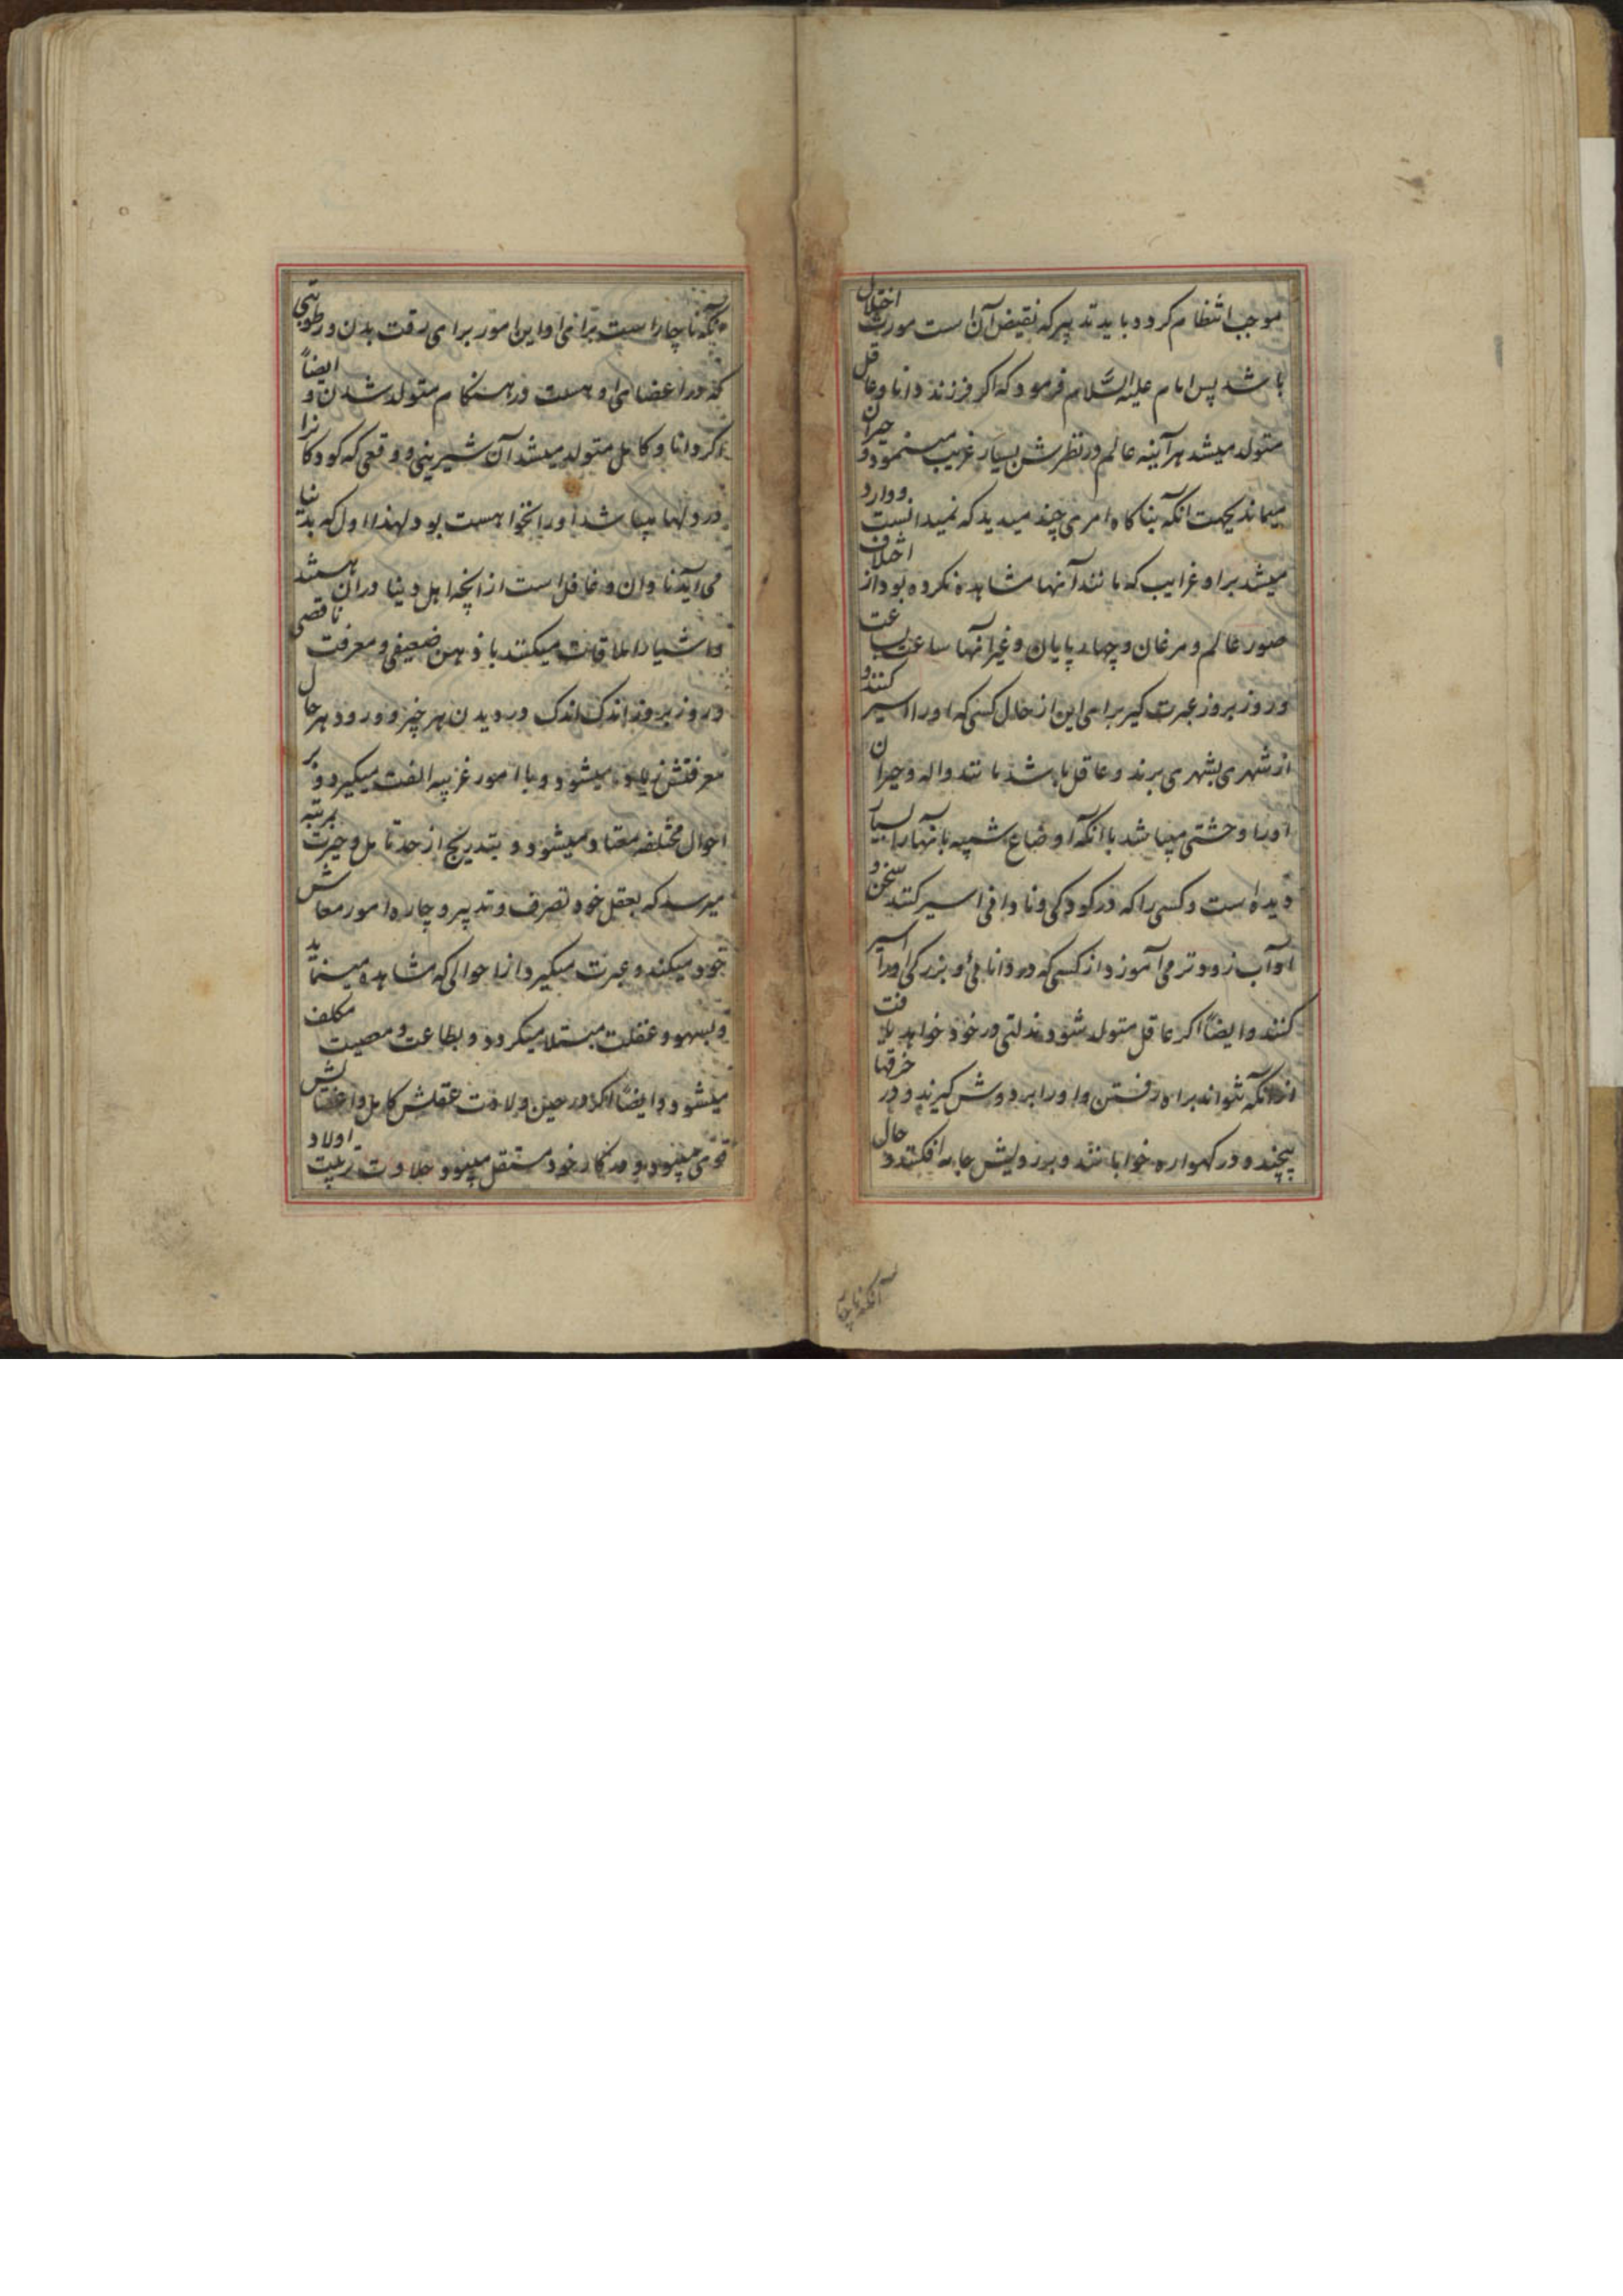 موجب انتظام کردد باید تدبیر که نقیض آن است مورث اختلال
باشد پس امام علیه السّلام فرمود که اکر فرزند دانا و عاقل
متولد میشد هر آینه عالم در نظرش بسیار غریب مینمود و حیران
میماند بجهت آنکه بناکاه امری چند میدید که نمیدانست و وارد
میشد بر او غرایب که مانند آنها مشاهده نکرده بود از اختلاف
صور عالم و مرغان و چهار پایان و غیر آنها ساعت بساعت
و روز بروز عبرت کیر برای این از حال کسی که او را اسیر کنند و
از شهری بشهری برند و عاقل باشد مانند واله و حیران
او را وحشتی میباشد با آنکه اوضاع شبیه بآنها را بسیار
دیده است و کسی را که در کودکی و نادانی اسیر کنند سخن و
آداب زودتر می آموزد از کسی که در دانائی و بزرکی او را اسیر
کنند و ایضاً اکر عاقل متولد شود مذلتی در خود خواهد یافت
از آنکه نتواند براه رفتن و او را بر دوش کیرند و در خرقها
پیچند و در کهواره خوابانند و بر رویش جامه افکنند و حال
آنکه ناچار
آنکه ناچار است برای او این امور برای رقت بدن و رطوبتی
که در اعضای او هست در هنکام متولد شدن و ایضاً
اکر دانا و کامل متولد میشد آن شیرینی و وقعی که کودکانرا
در دلها میباشد او را نخواهست بود لهذا اول که بدنیا
می آید نادان و غافل است از آنچه اهل دنیا در آن هستند
و اشیاء را ملاقات میکنند با ذهن ضعیفی و معرفت ناقصی
و روز بروز اندک اندک و بدیدن هر چیز و ورود هر حال
معرفتش زیاد میشود و با امور غریبه الفت میکیرد و بر
احوال مختلفه معتاد میشود و بتدریج از حد تامل و حیرت بمرتبه
میرسد که بعقل خود تصرف و تدبیر و چاره امور معاش
خود میکند و عبرت میکیرد از احوالی که مشاهده مینماید
و بسهو و غفلت مبتلا میکردد و بطاعت و معصیت مکلف
میشود و ایضاً اکر در حین ولادت عقلش کامل و اعضایش
قوی میبود و در کار خود مستقل میبود حلاوت تربیت اولاد